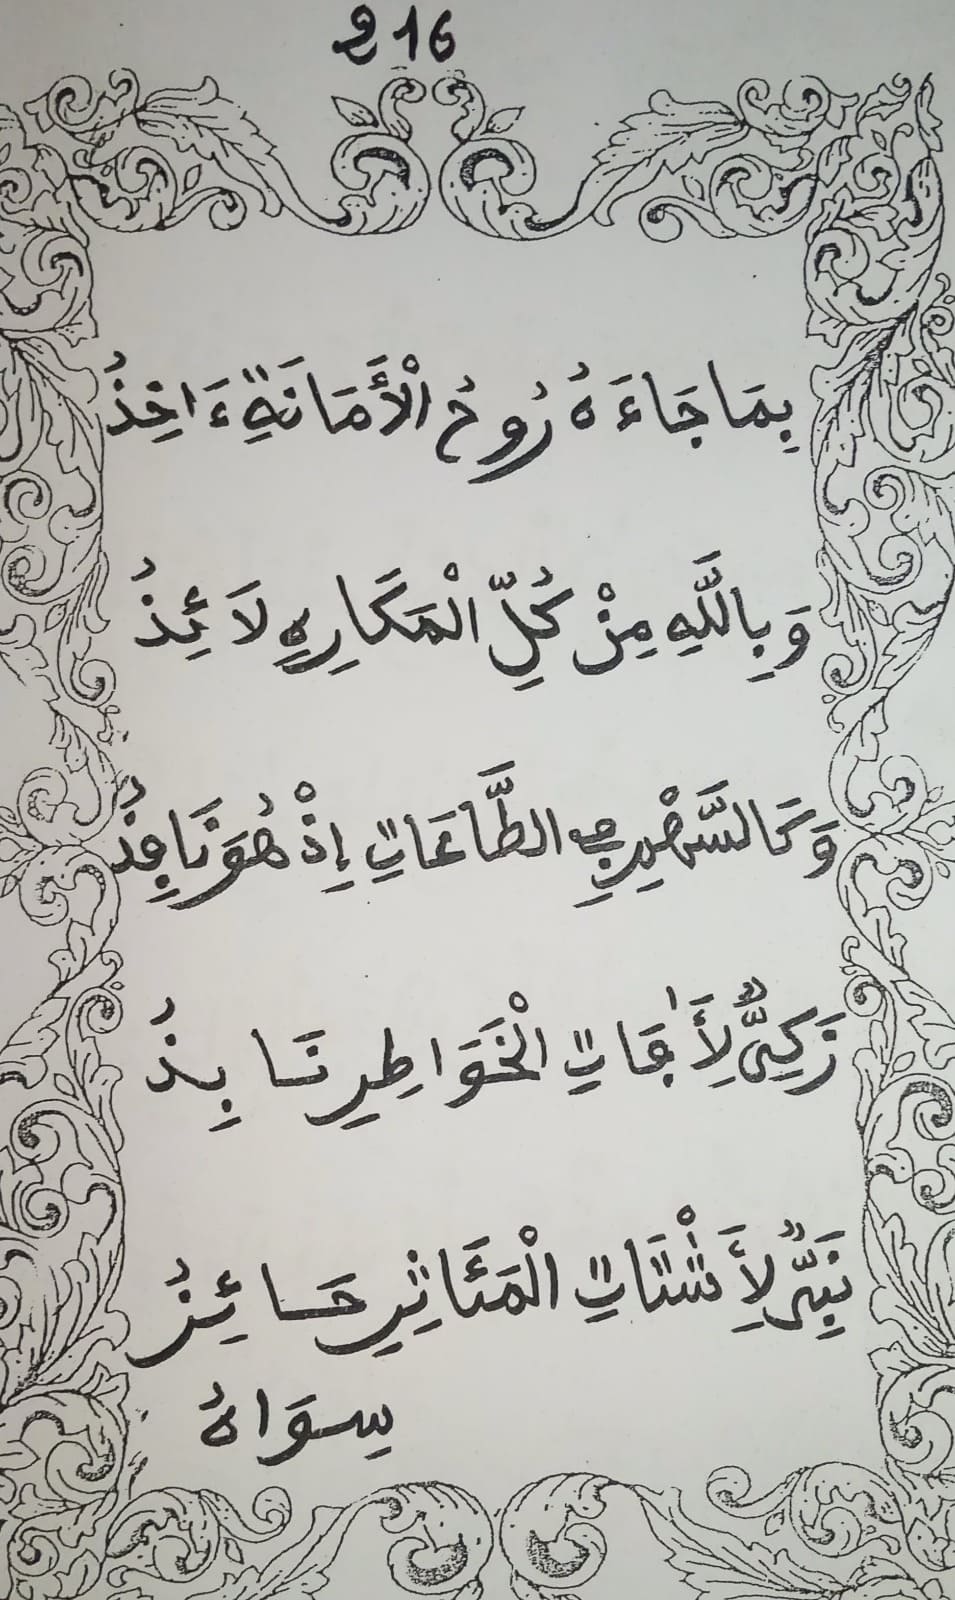 216
بِمَا جَاءَهُ رُوحُ الْأَمَانَةِ ءَاخِذُ
وَبِاللَّهِ مِنْ كُلِّ الْمَكَارِهِ لَائِذُ
وَكَالسَّهْمِ فِي الطَّاعَاتِ إِذْ هُوَ نَافِذُ
زَكِيٌّ لِأَفَاتِ الْخَوَاطِرِ نَابِذُ
نَبِيٌّ لِأَشْتَاتِ الْمَئَاثِرِ حَائِزُ
سِوَاهُ